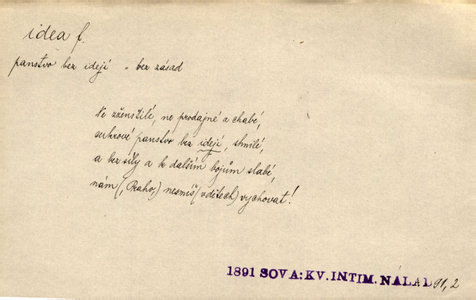 idea f.
panstvo bez idejí - bez zásad
Ne zženštilé, ne prodajné a chabé,
cukrové panstvo bez idejí, smilé,
a bez síly a k dalším bojům slabé,
nám (, Praho,) nesmíš (v dětech) vychovat!
1891 SOVA: KV. INTIM. NÁLAD 91, 2